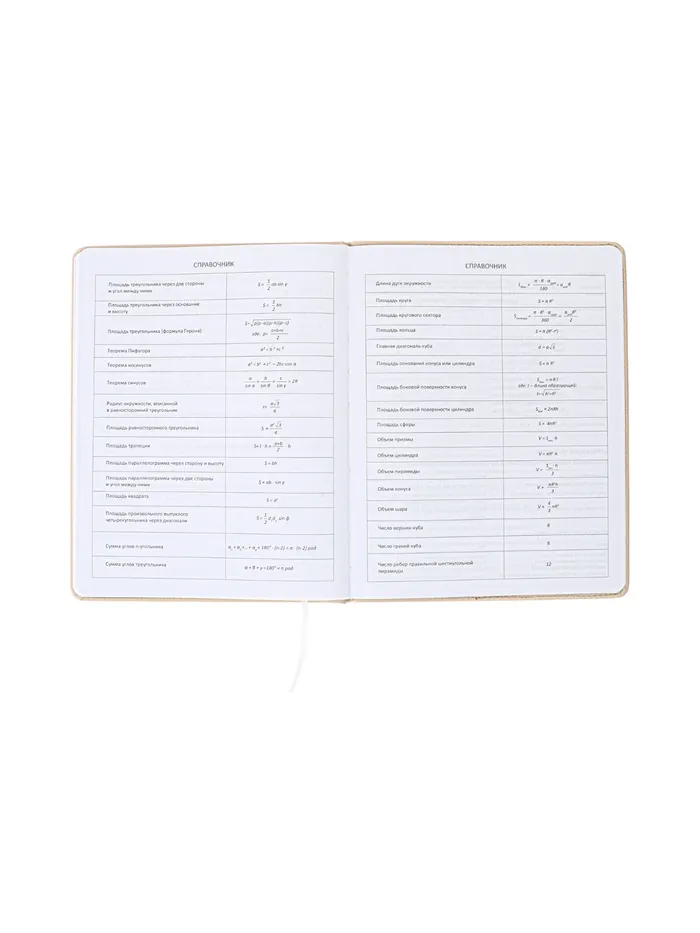 СПРАВОЧНИК
Площадь треугольника через две стороны
и угол между ними
Площадь треугольника через основание
и высоту
Площадь треугольника (формула Герона)
где: p= (a+b+c)/2
Теорема Пифагора
Теорема косинусов
Теорема синусов
Радиус окружности, вписанной
в равносторонний треугольник
Площадь равностороннего треугольника
Площадь трапеции
Площадь параллелограмма через сторону и высоту
S = bh
Площадь параллелограмма через две стороны
и угол между ними
S = ab · sin γ
Площадь квадрата
S = a²
Площадь произвольного выпуклого
четырехугольника через диагонали
Сумма углов n-угольника
Сумма углов треугольника
СПРАВОЧНИК
Длина дуги окружности
Площадь круга
S = π R²
Площадь кругового сектора
Площадь кольца
S = π (R²-r²)
Главная диагональ куба
d = a√3
Площадь основания конуса или цилиндра
S = π R²
Площадь боковой поверхности конуса
где: l – длина образующей;
Площадь боковой поверхности цилиндра
Площадь сферы
S = 4πR²
Объем призмы
Объем цилиндра
Объем пирамиды
Объем конуса
Объем шара
Число вершин куба
8
Число граней куба
Число ребер правильной шестиугольной
пирамиды
12